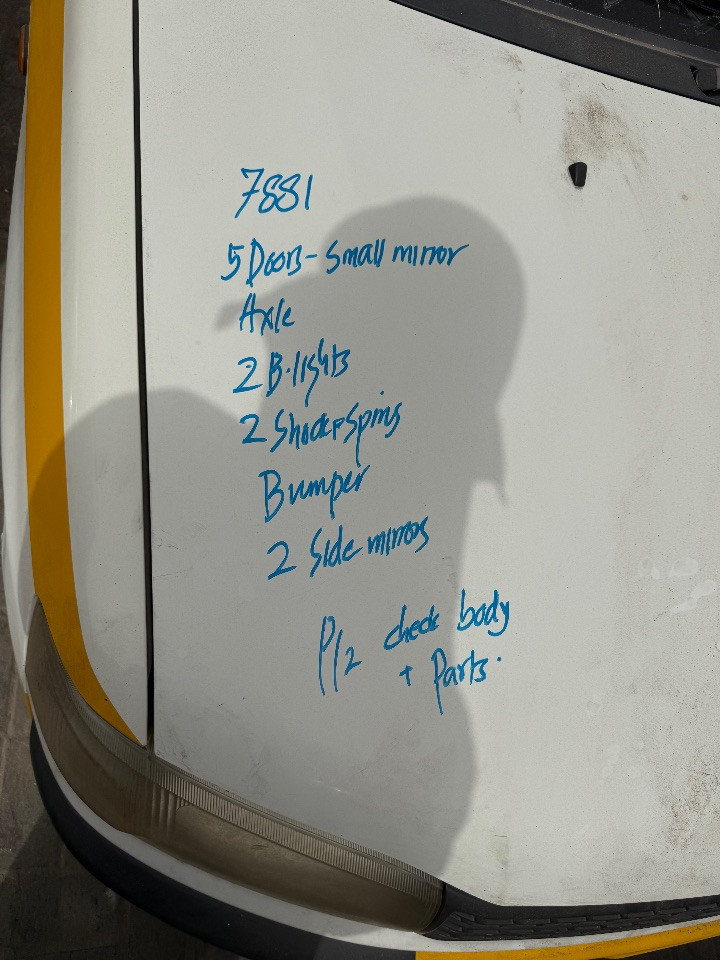 7881
5 Doors - Small mirror
Axle
2 B.lights
2 Shock + Spring
Bumper
2 Side mirrors
check body
+ Parts.